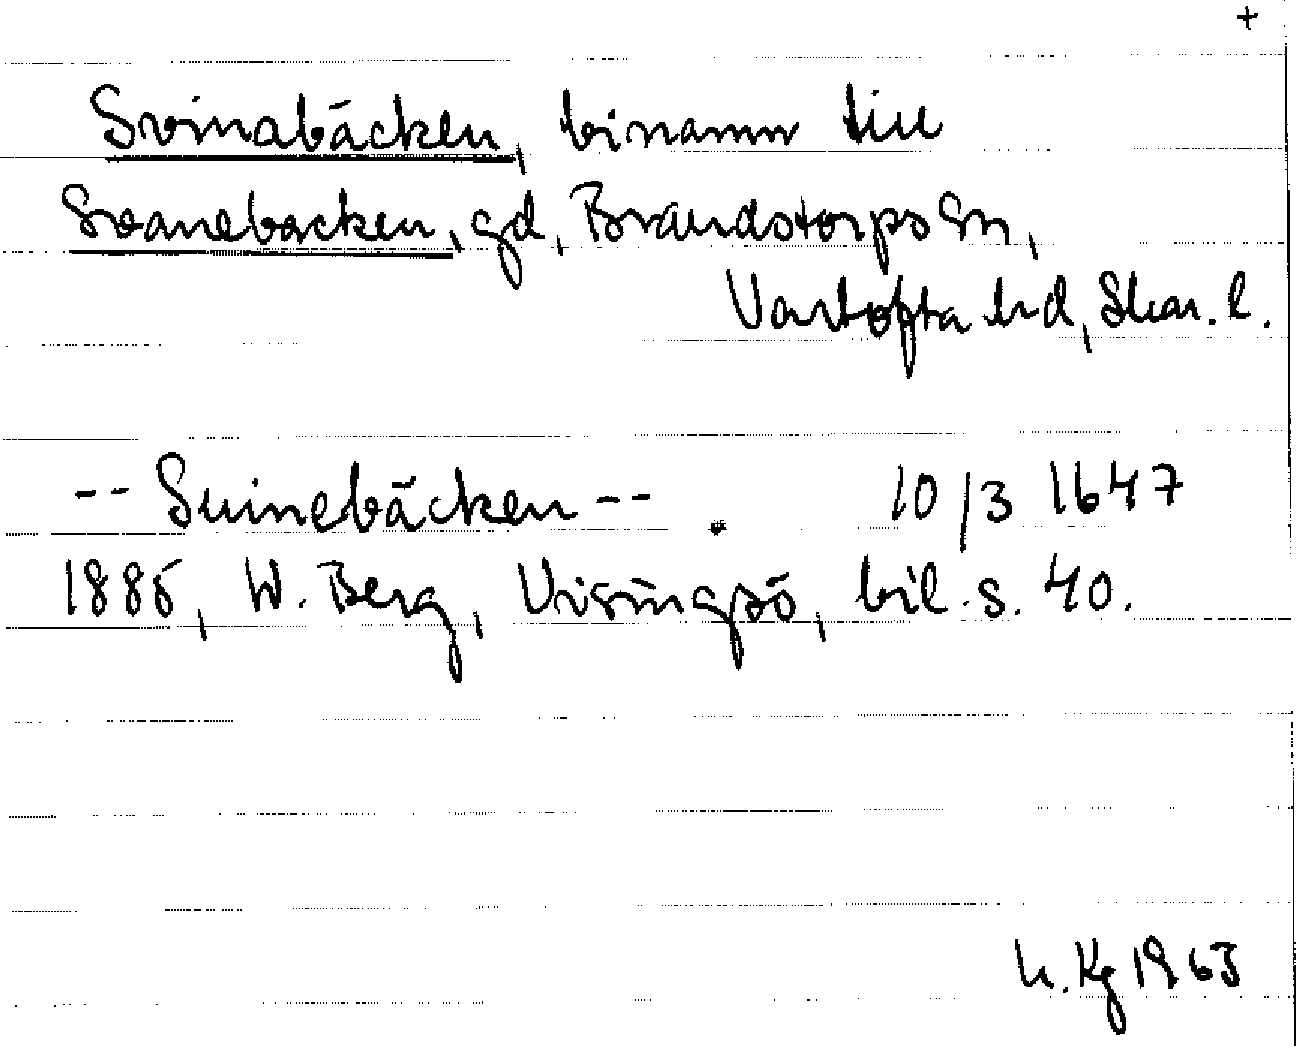 +
Svinabäcken, binamn till
Svanebacken, gd, Brandstorps sn,
Vartofta hd, Skar. l.
-- Suinebäcken -- . 10/3 1647
1885, W. Berg, Visingsö, bil. s. 40.
h. Kg 1963